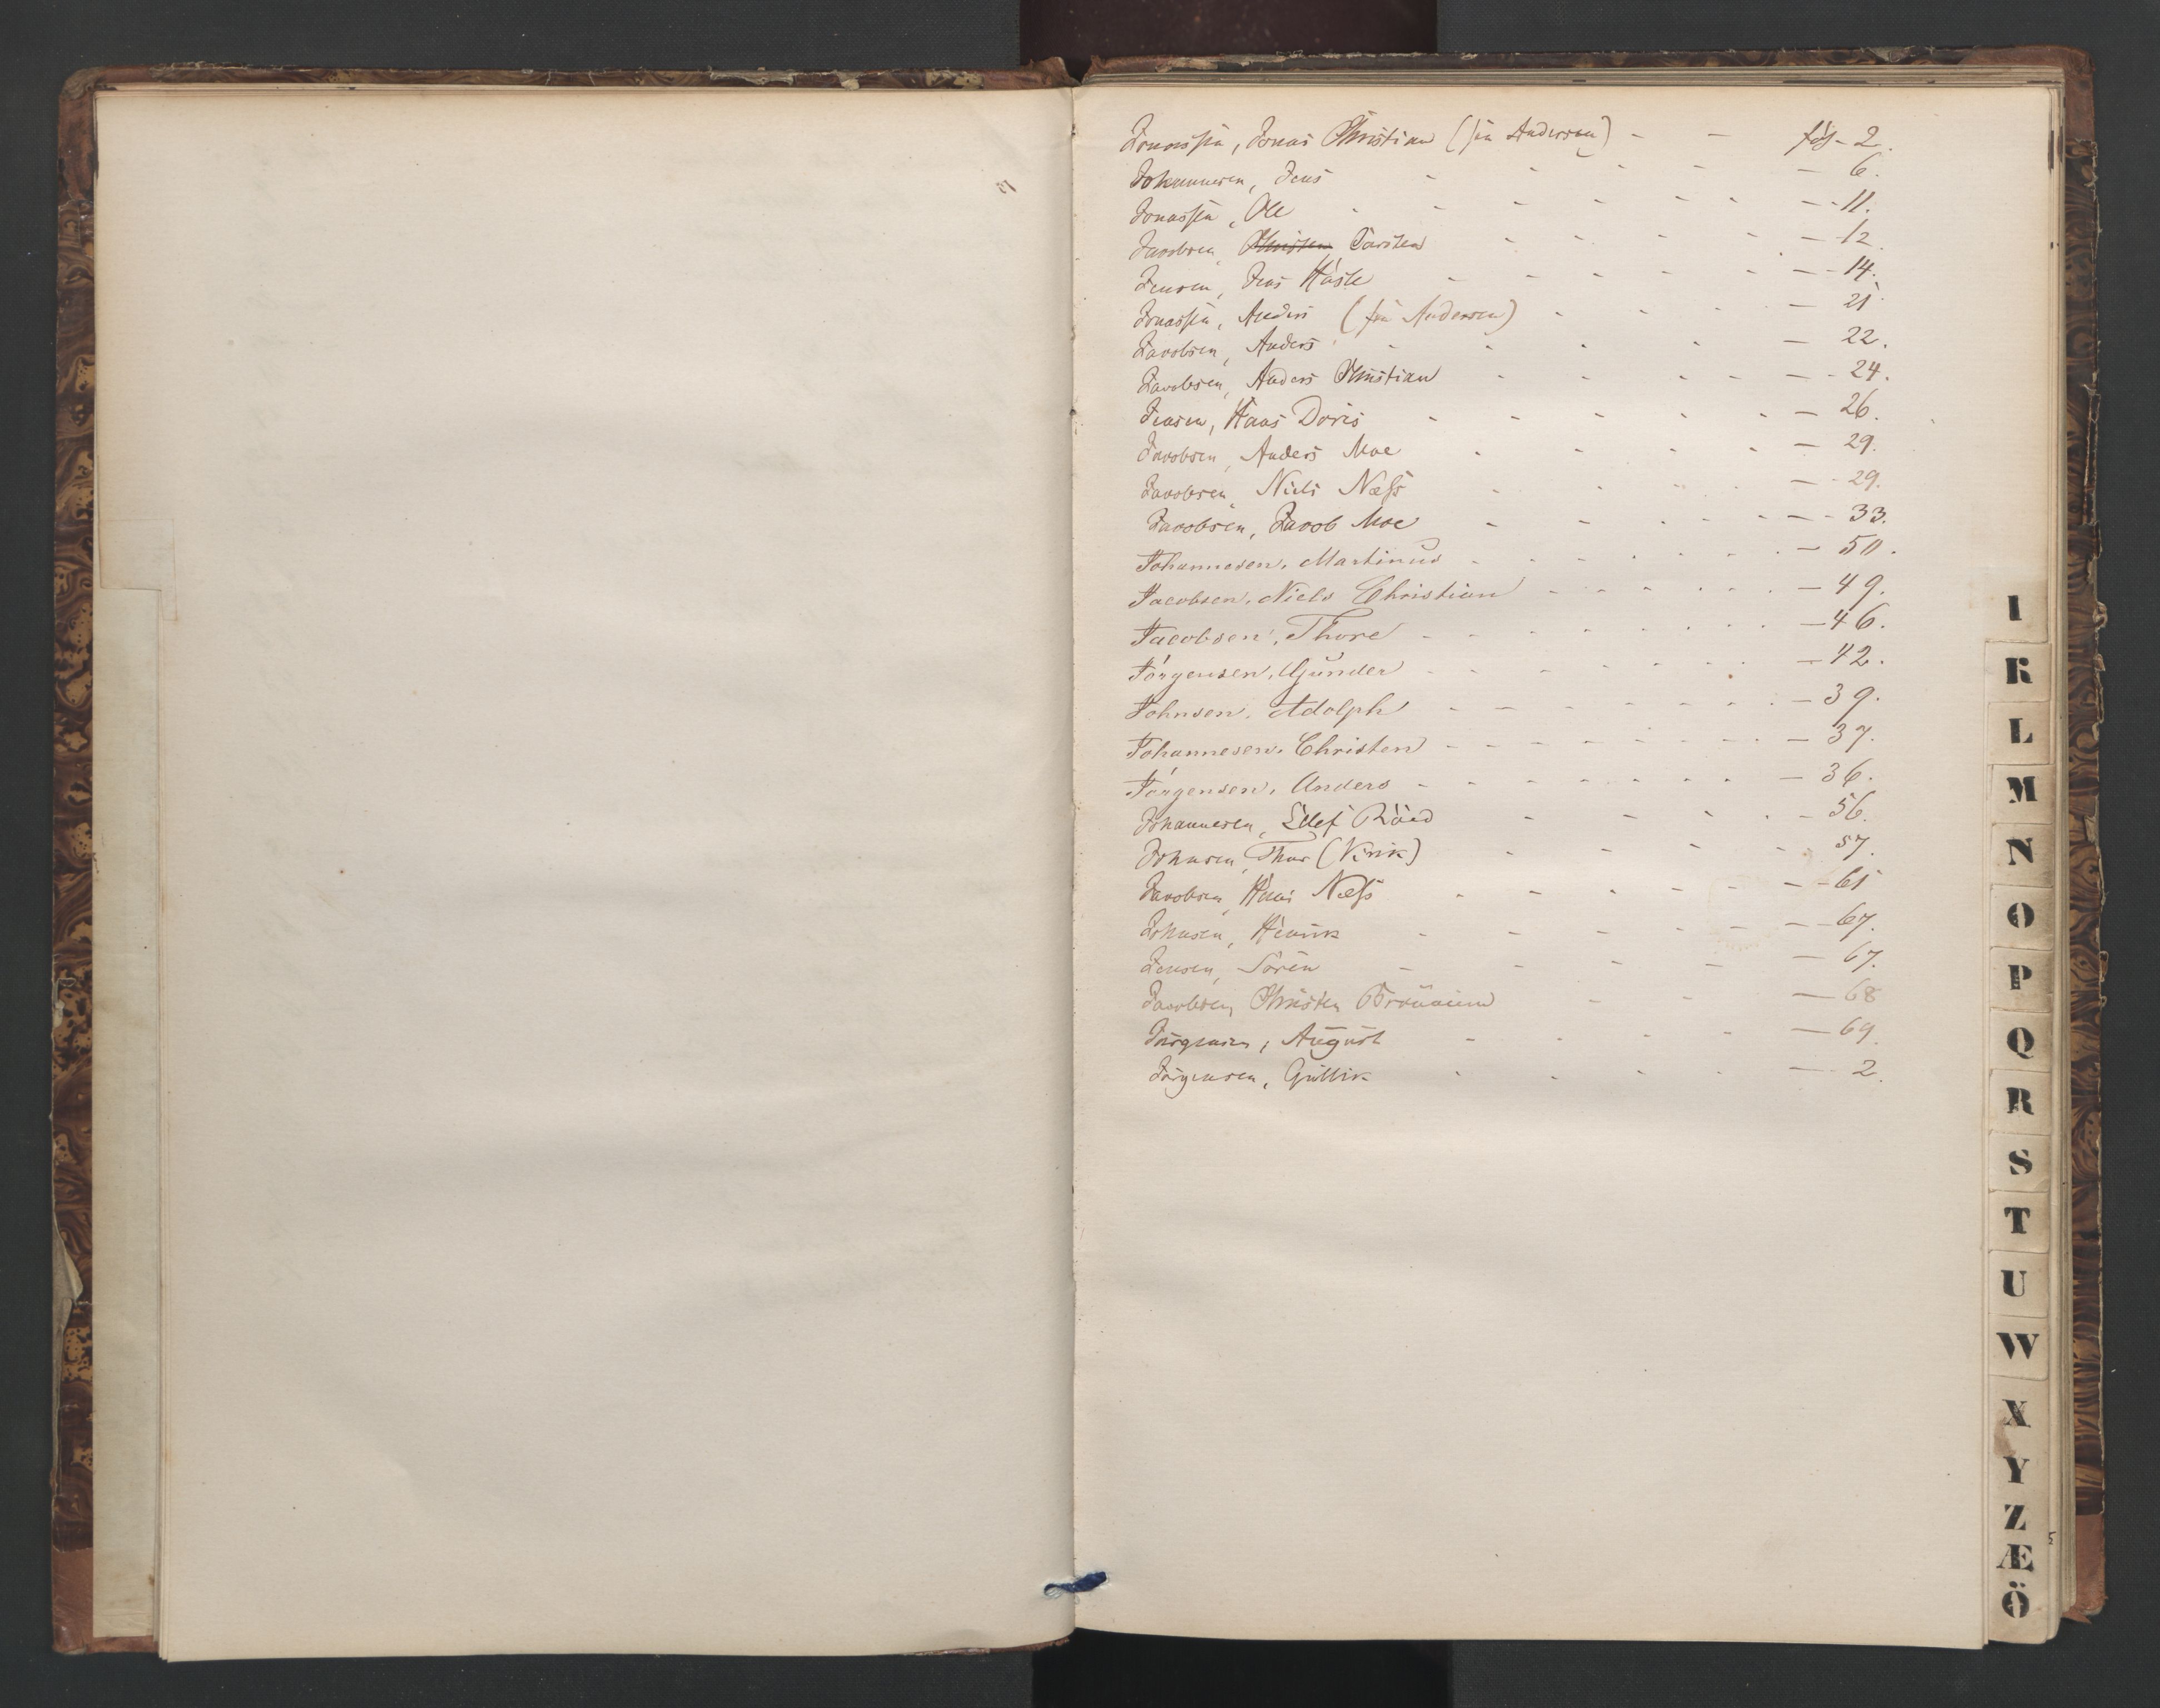 Jonassen, Jonas Christian (sen Andersen) - - fol - 2.
Johannesen, Jens - - - - - 6.
Jonassen, Ole - - - - - - 11.
Jacobsen, Christen Carsten - - - - - 12.
Jensen, Jens Haste - - - - - 14.
Jonassen, Anders (sen Andersen) - - - - 21
Jacobsen, Anders - - - - - 22.
Jacobsen, Anders Christian - - - - - 24.
Jensen, Hans Doris - - - - - - 26.
Jacobsen, Anders Moe - - - - - 29.
Jacobsen, Niels Næss - - - - 29.
Jacobsen, Jacob Moe - - - - - 33.
Johannesen, Martinus - - - - - - - 50.
Jacobsen, Niels Christian - - - - - - 49.
Jacobsen, Thore - - - - - - - - 46.
Jörgensen, Gunder - - - - - - - 42.
Johnsen, Adolph - - - - - - - - 39.
Johannesen, Christen - - - - - - - - 37.
Jörgensen, Anders - - - - - - - - 36.
Johannesen, Ellef Röed - - - - - 56.
Johnsen, Thor (Virik) - - - - 57.
Jacobsen, Hans Næss - - - - - - 61
Johnsen, Henrik - - - - - - 67.
Jensen, Sören - - - - - 67.
Jacobsen, Christen - - - 68
Jörgensen, August - - - - - 69.
Jörgensen, Gullik - - - - - 2.
I
K
L
M
N
O
P
Q
R
S
T
U
W
X
Y
Z
Æ
Ö